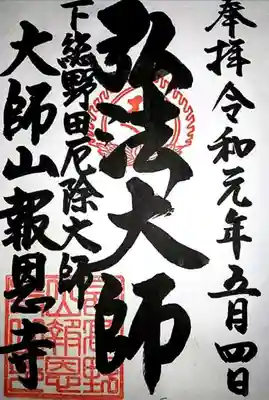 奉拝 令和元年五月四日
弘法大師
下熊野田厄除大師
大師山報恩寺